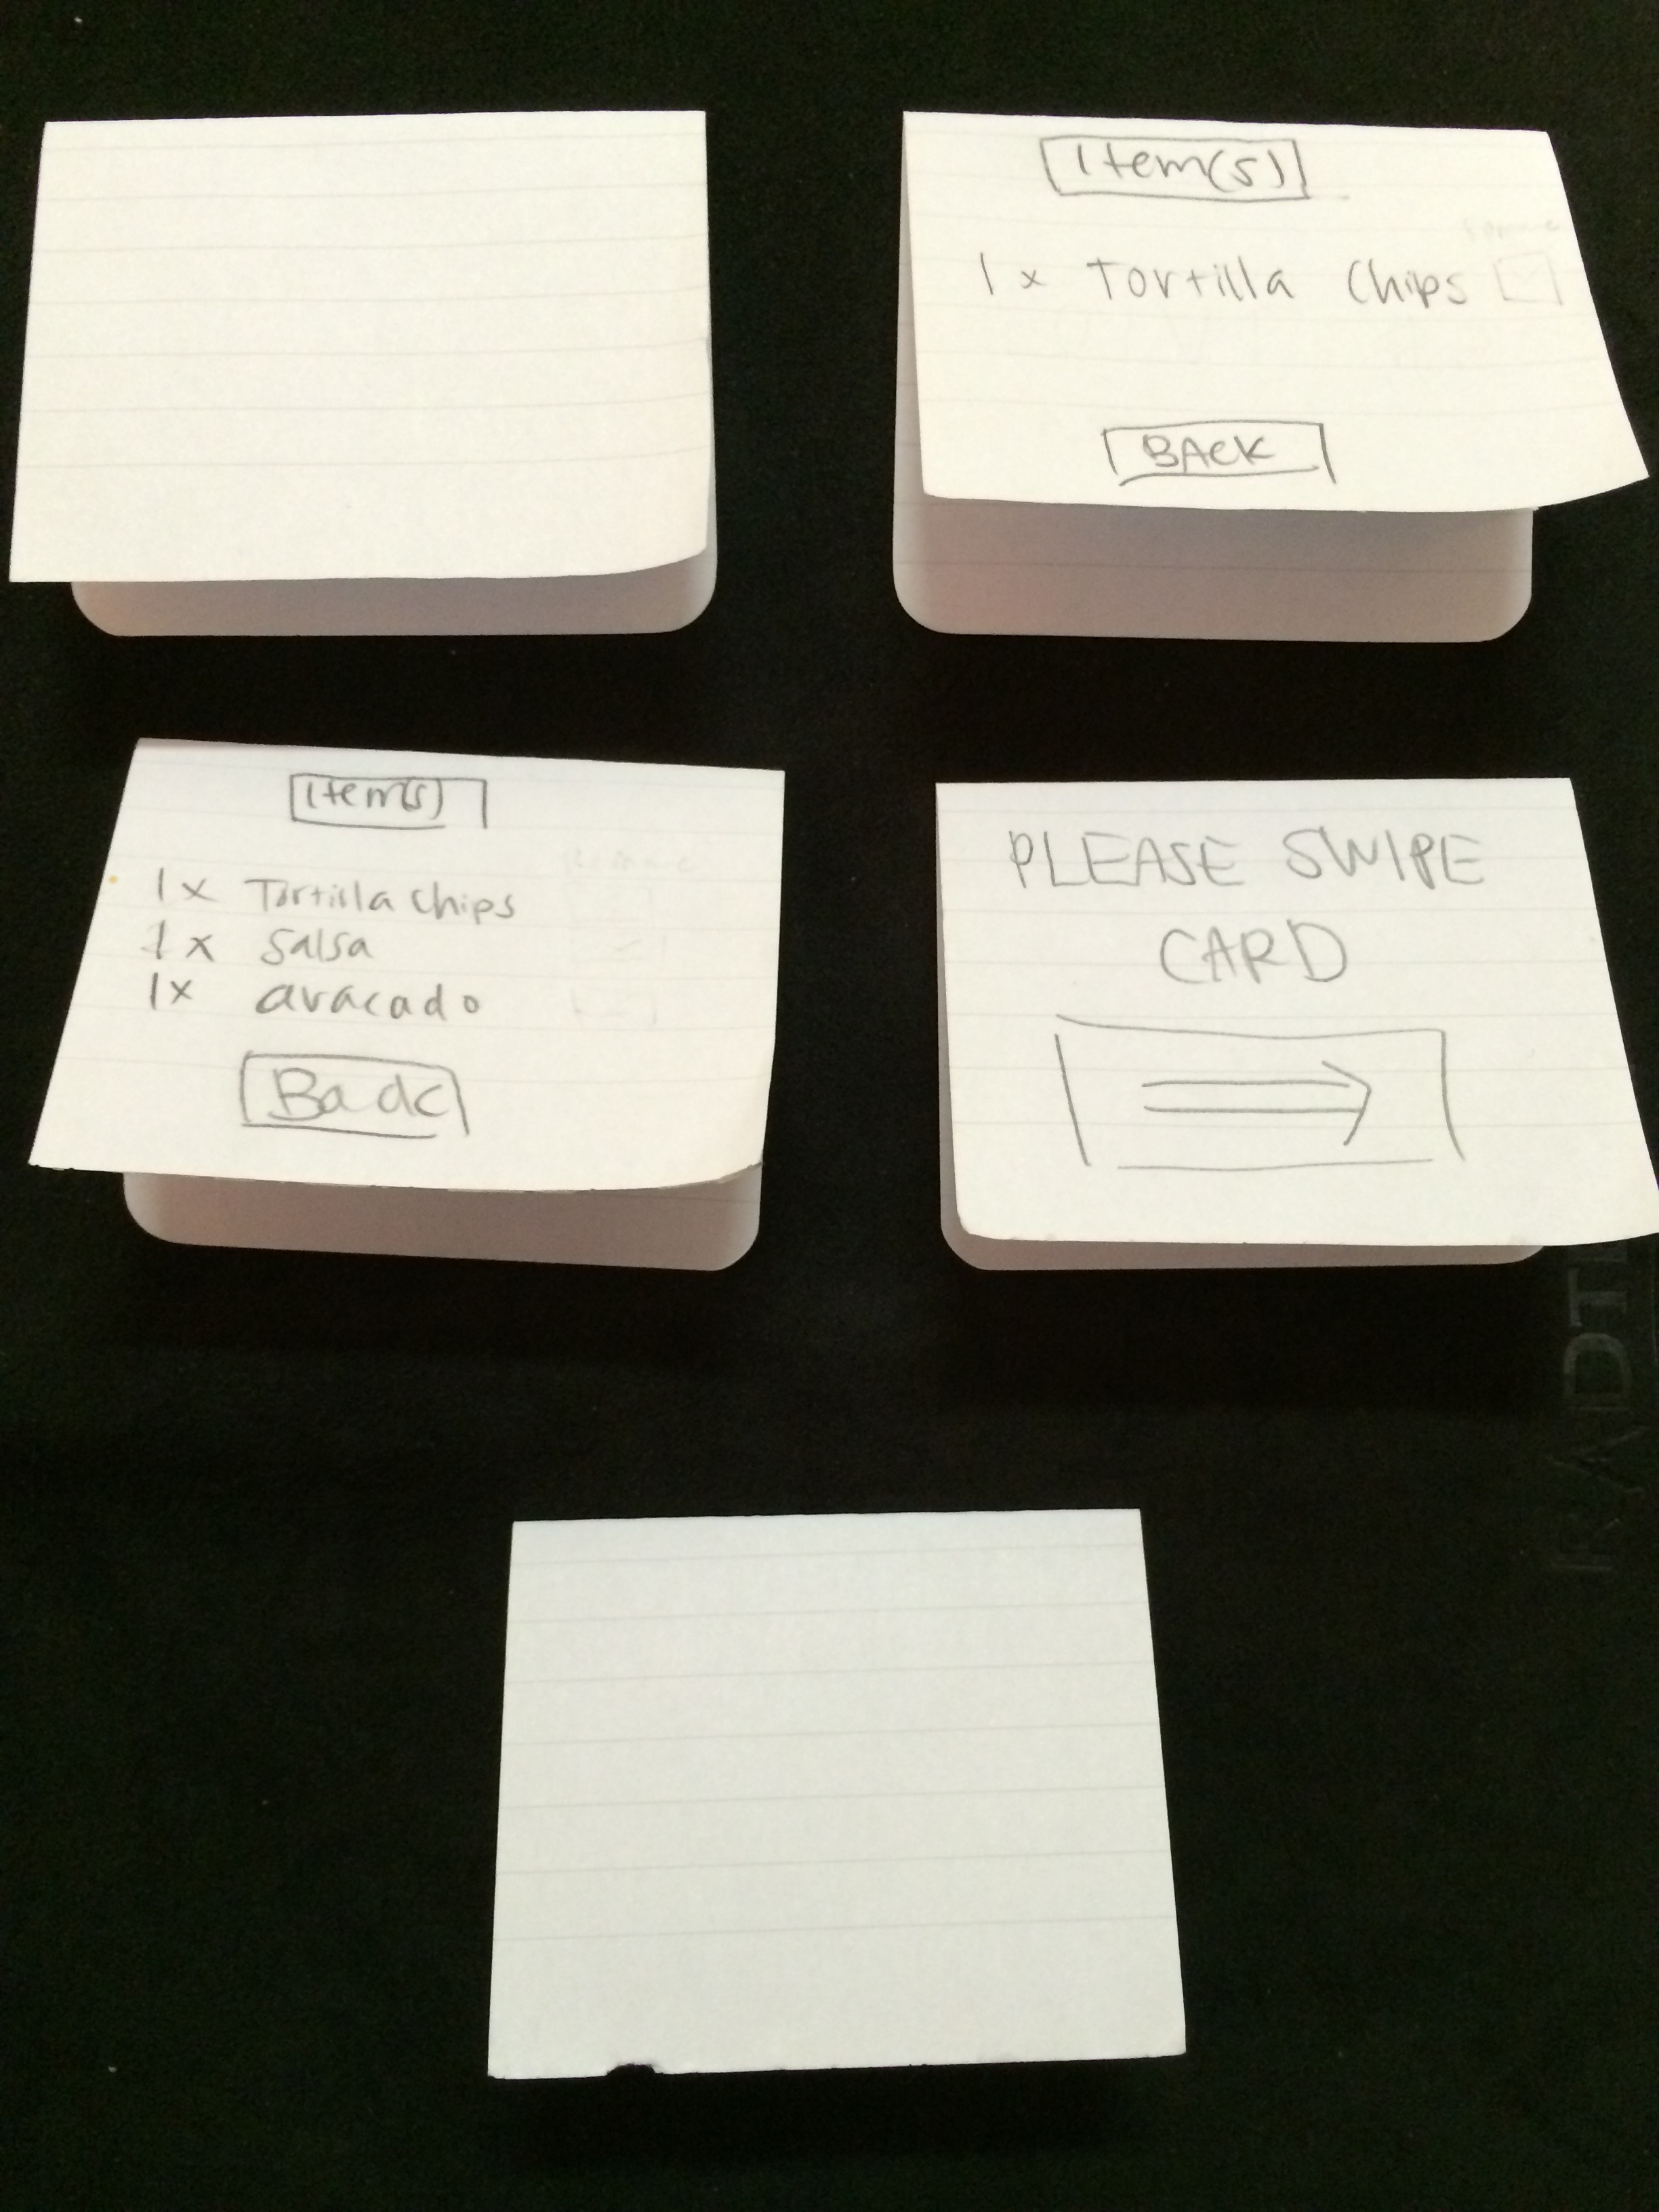 Item(s)
1 x Tortilla Chips
BACK
Item(s)
1x Tortilla Chips
1x Salsa
1x avacado
Back
PLEASE SWIPE
CARD